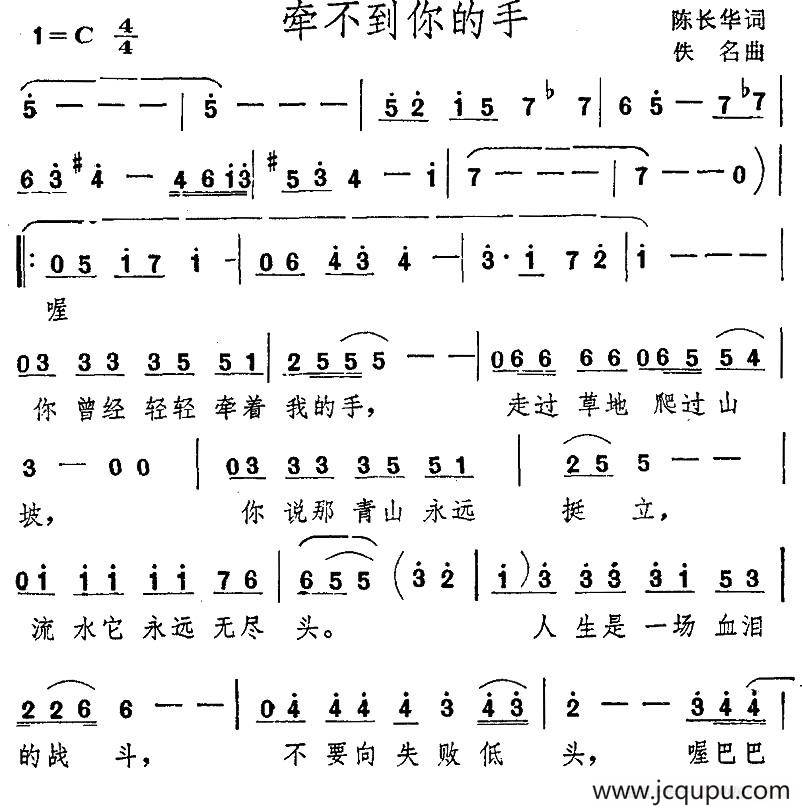 牵不到你的手
1=C 4/4
陈长华词
佚 名曲
5 — — — | 5 — — — | 5 2 1 5 7 ♭7 | 6 5 — 7 ♭7 |
6 3 #4 — 4 6 1 3 | #5 3 4 — 1 | 7 — — — | 7 — — 0 ) |
‖: 0 5 1 7 1 — | 0 6 4 3 4 — | 3 · 1 7 2 | 1 — — — |
喔
0 3 3 3 3 5 5 1 | 2 5 5 5 — — | 0 6 6 6 6 0 6 5 5 4 |
你 曾经 轻轻 牵着 我的 手, 走过 草地 爬过 山
3 — 0 0 | 0 3 3 3 3 5 5 1 | 2 5 5 — — |
坡, 你 说那 青山 永远 挺 立,
0 1 1 1 1 1 7 6 | 6 5 5 ( 3 2 | 1 ) 3 3 3 3 1 5 3 |
流 水它 永远 无尽 头。 人 生是 一场 血泪
2 2 6 6 — — | 0 4 4 4 4 3 4 3 | 2 — — 3 4 4 |
的战 斗, 不 要向 失 败 低 头, 喔巴巴
www.jcqupu.com